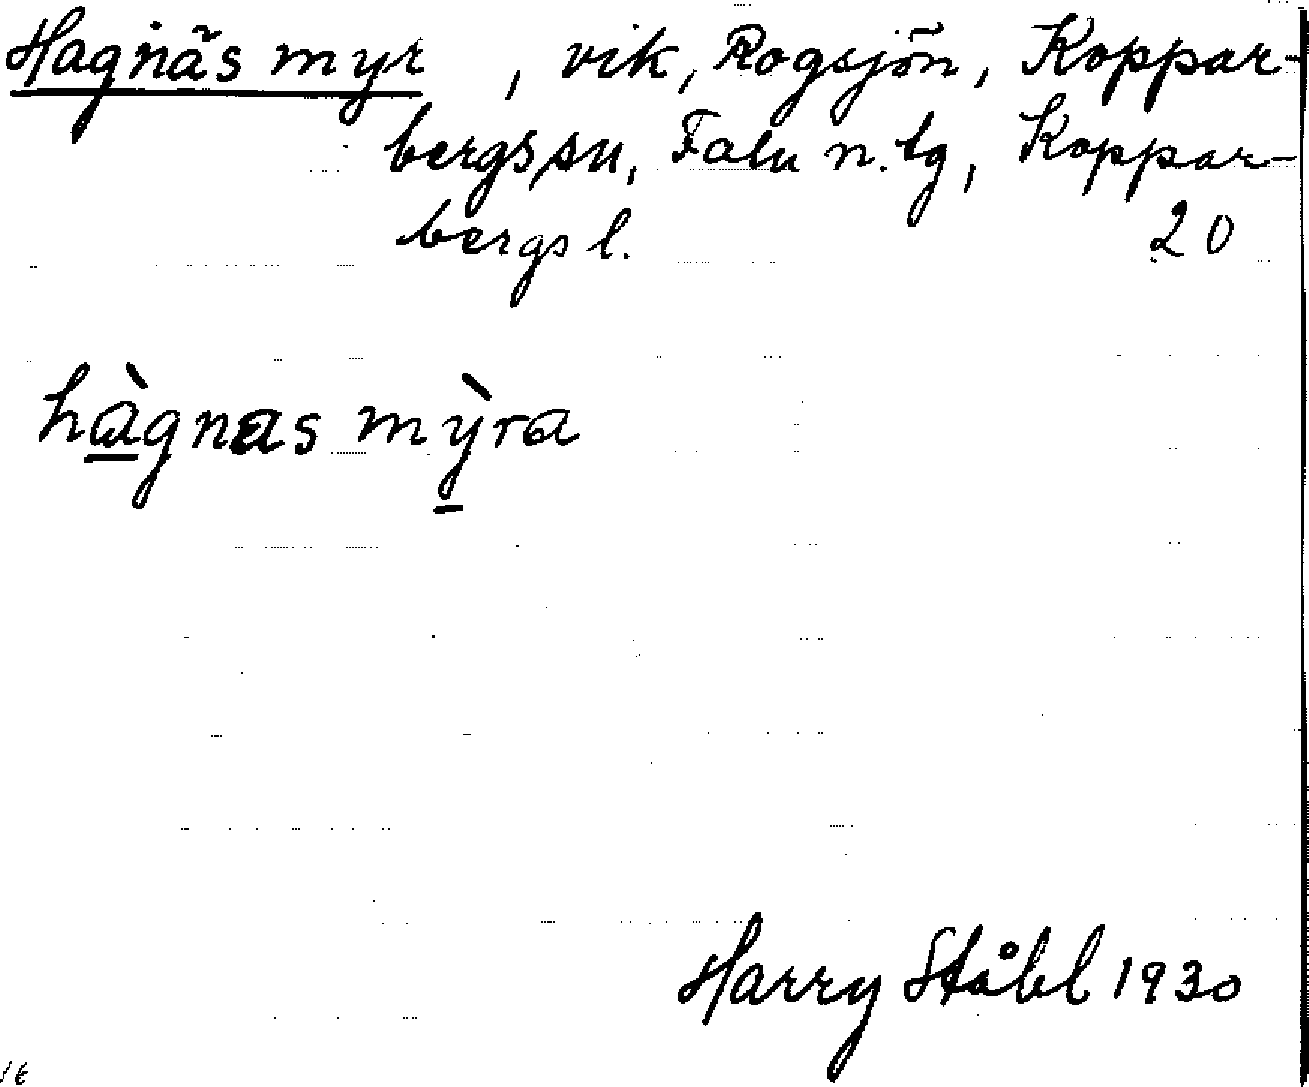 Hagnäs myr , vik, Rogsjön, Koppar-
bergs sn, Falu n. tg, Koppar-
bergs l. 20
hàgnas mỳra
Harry Ståhl 1930